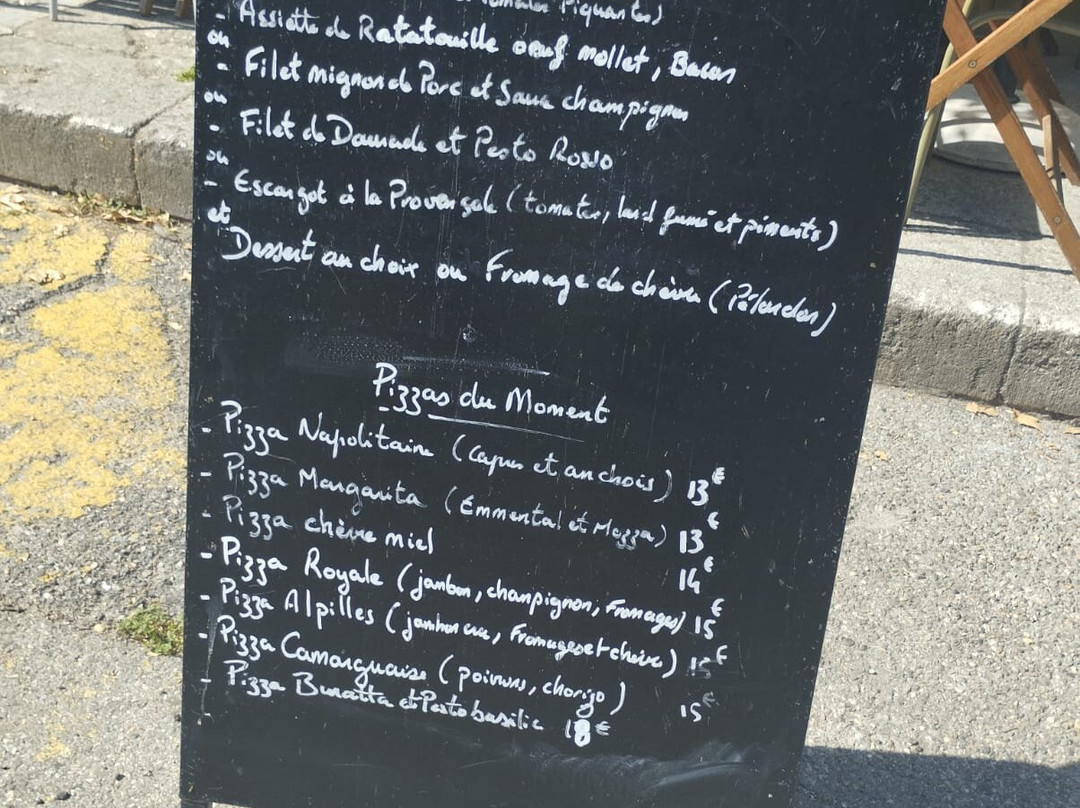 Tomates Piquantes)
- Assiette de Ratatouille œuf mollet, Bacon
ou
- Filet mignon de Porc et Sauce champignon
ou
- Filet de Daurade et Pesto Rosso
ou
- Escargot à la Provençale (tomates, lard fumé et piments)
et
Dessert au choix ou Fromage de chèvre (Pélardon)
Pizzas du Moment
- Pizza Napolitaine (capres et anchois) 13€
- Pizza Margarita (Emmental et Mozza) 13€
- Pizza chèvre miel 14€
- Pizza Royale (jambon, champignon, Fromages) 15€
- Pizza Alpilles (jambon cru, Fromages et chèvre) 15€
- Pizza Camarguaise (poivrons, chorizo) 15€
- Pizza Buratta et Pesto basilic 18€